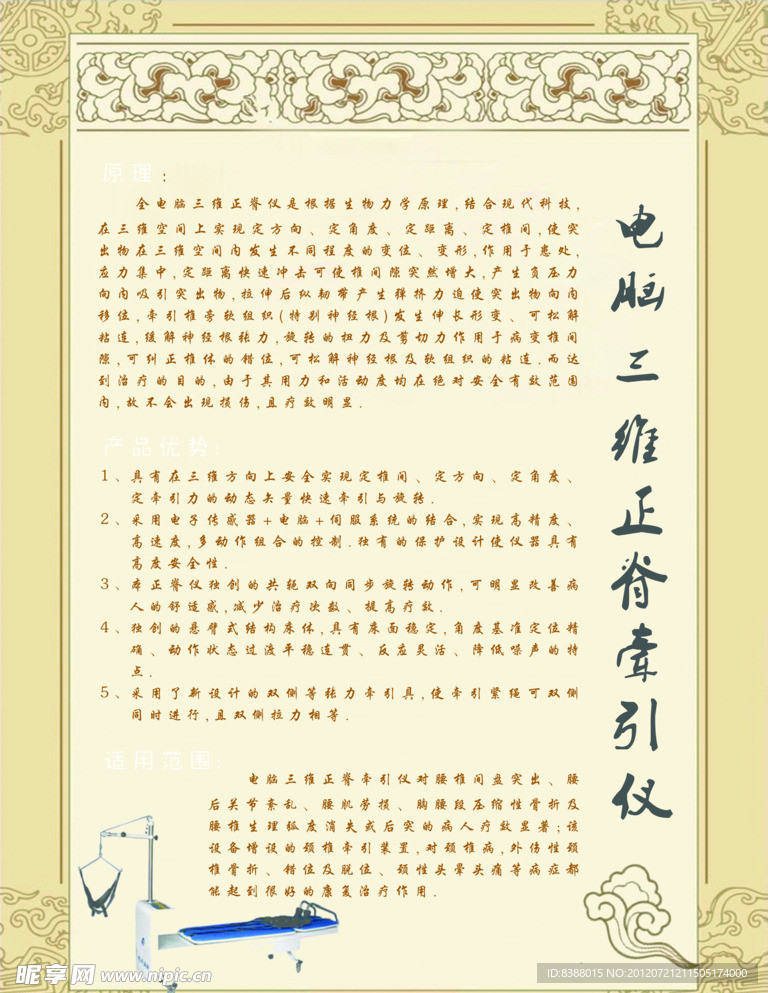 电脑三维正脊牵引仪
原理:
全电脑三维正脊仪是根据生物力学原理,结合现代科技,
在三维空间上实现定方向、定角度、定距离、定椎间,使突
出物在三维空间内发生不同程度的变位、变形,作用于患处,
应力集中,定距离快速冲击可使椎间隙突然增大,产生负压力
向内吸引突出物,拉伸后纵韧带产生弹挤力迫使突出物向内
移位,牵引推旁软组织(特别神经根)发生伸长形变、可松解
粘连,缓解神经根张力,旋转的扭力及剪切力作用于病变椎间
隙,可纠正椎体的错位,可松解神经根及软组织的粘连.而达
到治疗的目的,由于其用力和活动度均在绝对安全有效范围
内,故不会出现损伤,且疗效明显.
产品优势:
1、具有在三维方向上安全实现定椎间、定方向、定角度、
定牵引力的动态矢量快速牵引与旋转.
2、采用电子传感器+电脑+伺服系统的结合,实现高精度、
高速度,多动作组合的控制.独有的保护设计使仪器具有
高度安全性.
3、本正脊仪独创的共轭双向同步旋转动作,可明显改善病
人的舒适感,减少治疗次数、提高疗效.
4、独创的悬臂式结构床体,具有床面稳定,角度基准定位精
确、动作状态过渡平稳连贯、反应灵活、降低噪声的特
点.
5、采用了新设计的双侧等张力牵引具,使牵引紧绳可双侧
同时进行,且双侧拉力相等.
适用范围:
电脑三维正脊牵引仪对腰椎间盘突出、腰
后关节紊乱、腰肌劳损、胸腰段压缩性骨折及
腰椎生理弧度消失或后突的病人疗效显著;该
设备增设的颈椎牵引装置,对颈椎病,外伤性颈
椎骨折、错位及脱位、颈性头晕头痛等病症都
能起到很好的康复治疗作用.
昵享网 www.nipic.cn
ID:8388015 NO:20120721211505174000